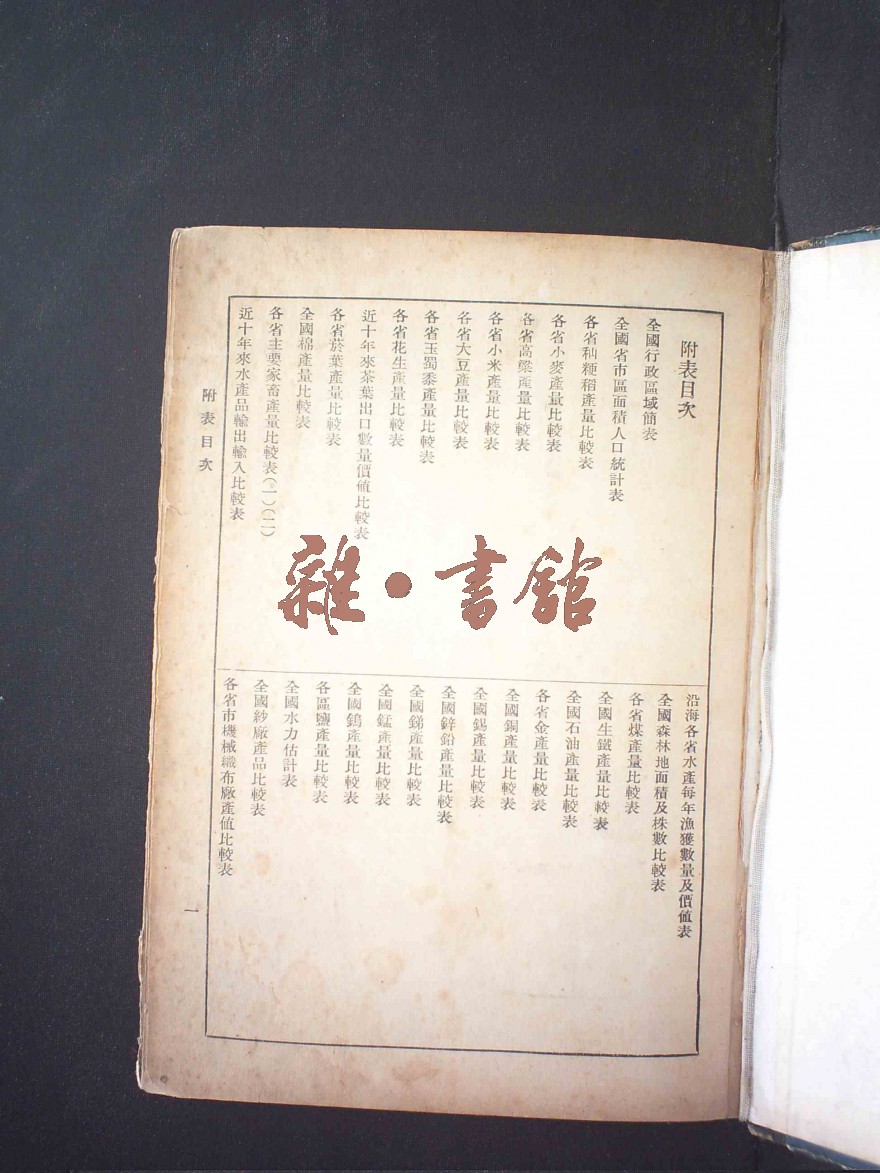 附表目次
全國行政區域簡表
全國省市區面積人口統計表
各省秈粳稻產量比較表
各省小麥產量比較表
各省高粱產量比較表
各省小米產量比較表
各省大豆產量比較表
各省玉蜀黍產量比較表
各省花生產量比較表
近十年來茶葉出口數量價値比較表
各省菸葉產量比較表
全國棉產量比較表
各省主要家畜產量比較表(一)(二)
近十年來水產品輸出輸入比較表
沿海各省水產每年漁獲數量及價値表
全國森林地面積及株數比較表
各省煤產量比較表
全國生鐵產量比較表
全國石油產量比較表
各省金產量比較表
全國銅產量比較表
全國錫產量比較表
全國鋅鉛產量比較表
全國銻產量比較表
全國錳產量比較表
全國鎢產量比較表
各區鹽產量比較表
全國水力估計表
全國紗廠產品比較表
各省市機械織布廠產值比較表
附表目次
一
雜·書館